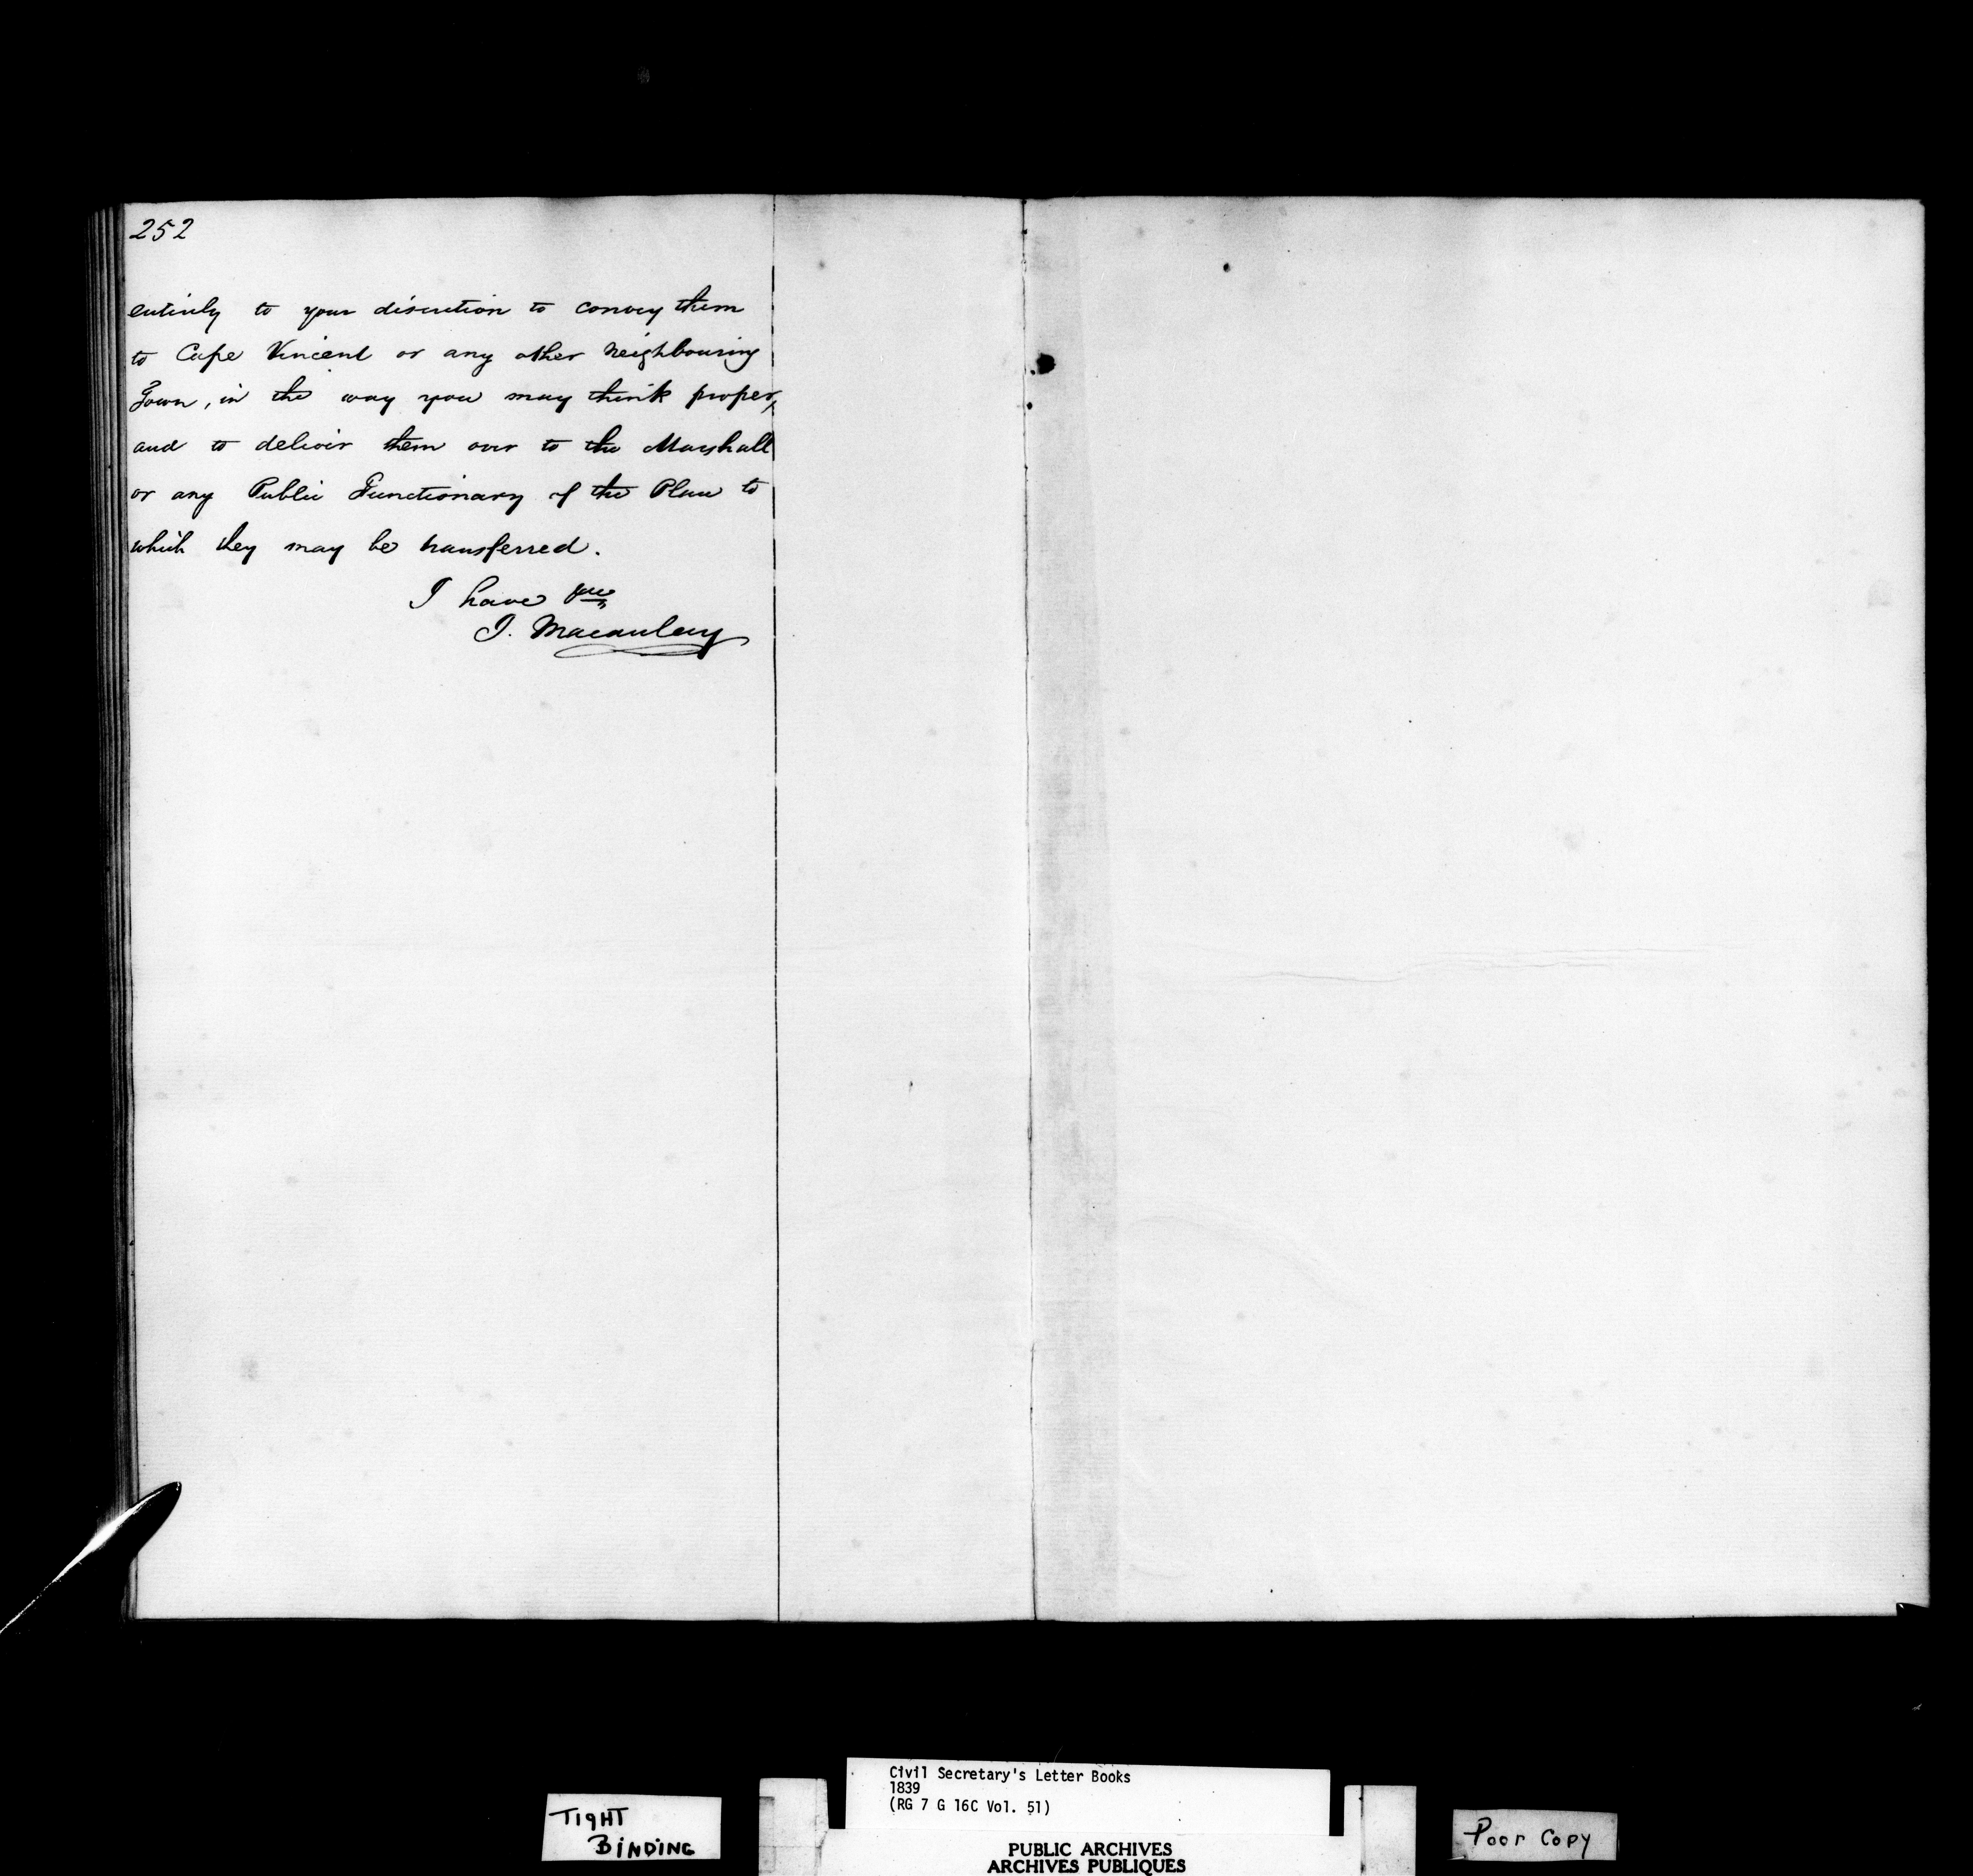 252
entirely to your discretion to convey them
to Cape Vincent or any other neighbouring
Town, in the way you may think proper,
and to deliver them over to the Marshall
or any Public Functionary of the Place to
which they may be transferred.
I have &c
J. Macaulay
TIGHT
BINDING
Civil Secretary's Letter Books
1839
(RG 7 G 16C Vol. 51)
PUBLIC ARCHIVES
ARCHIVES PUBLIQUES
Poor Copy